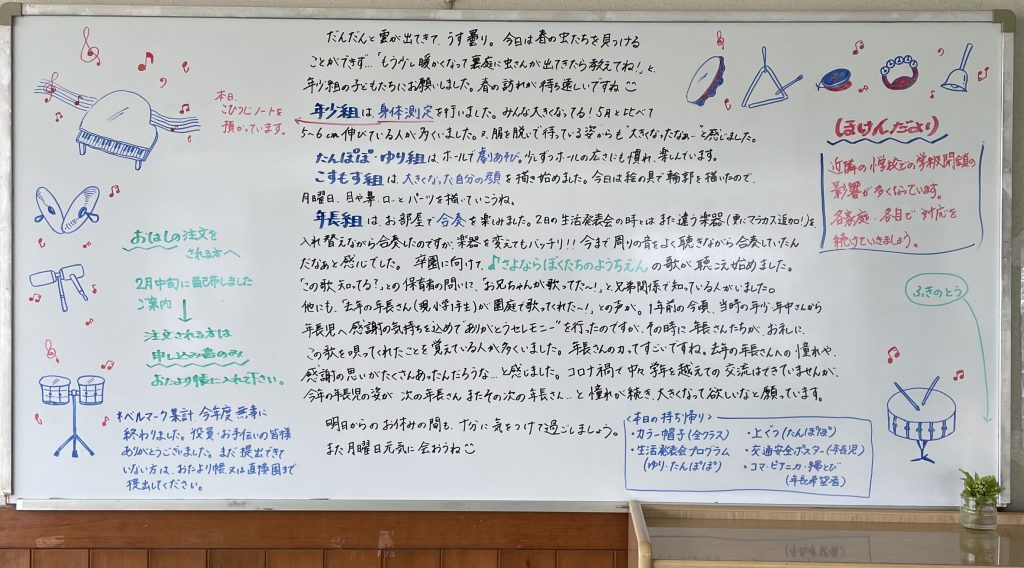 だんだんと雲が出てきて、うす曇り。今日は春の虫たちを見つける
ことができず…「もう少し暖かくなって裏庭に虫さんが出てきたら教えてね!」と、
年少組の子どもたちにお願いしました。春の訪れが待ち遠しいですね
年少組は、身体測定を行いました。みんな大きくなってる!5月と比べて
5~6cm伸びている人が多くいました。又、服を脱いで待っている姿からも"大きくなったなぁ~"と感じました。
たんぽぽ・ゆり組は、ホールで劇あそび。少しずつホールの広さにも慣れ、楽しんでいます。
こすもす組は、大きくなった自分の顔を描き始めました。今日は絵の具で輪郭を描いたので、
月曜日、目や鼻、口…とパーツを描いていこうね。
年長組は、お部屋で合奏を楽しみました。2日の生活発表会の時とはまた違う楽器(更にマラカス追加!)を
入れ替えながら合奏したのですが、楽器を変えてもバッチリ!!今まで周りの音をよく聴きながら合奏していたん
だなぁと感心でした。卒園に向けて、♪さよならぼくたちのようちえんの歌が聴こえ始めました。
「この歌知ってる?」との保育者の問いに、「お兄ちゃんが歌ってた~!」と兄弟関係で知っている人がいました。
他にも、「去年の年長さん(現小学1年生)が園庭で歌ってくれた~!」との声が。1年前の今頃、当時の年少・年中さんから
年長児へ感謝の気持ちを込めて"ありがとうセレモニー"を行ったのですが、その時に年長さんたちが、お礼に、
この歌を唄ってくれたことを覚えている人が多くいました。年長さんの力ってすごいですね。去年の年長さんへの憧れや、
感謝の思いがたくさんあったんだろうな…と感じました。コロナ禍で中々学年を越えての交流はできていませんが、
今年の年長児の姿が次の年長さん、またその次の年長さん…と憧れが続き、大きくなって欲しいなと願っています。
明日からのお休みの間も、十分に気をつけて過ごしましょう。
また月曜日元気に会おうね
本日、
こひつじノートを
預かっています。
おはしの注文を
される方へ
2月中旬に配布しました
ご案内
↓
注文される方は
申し込み書のみ
おたより帳に入れて下さい。
*ベルマーク集計、今年度無事に
終わりました。役員・お手伝いの皆様
ありがとうございました。まだ提出できて
いない方は、おたより帳又は直接園まで
提出してください。
ほけんだより
近隣の小学校での学級閉鎖の
影響が多くなっています。
各家庭、各自で対応を
続けていきましょう。
ふきのとう
<本日の持ち帰り>
・カラー帽子(全クラス)
・生活発表会プログラム
(ゆり・たんぽぽ)
・上ぐつ(たんぽぽ)
・交通安全ポスター(年長児)
・コマ・ピアニカ・縄とび
(年長希望者)